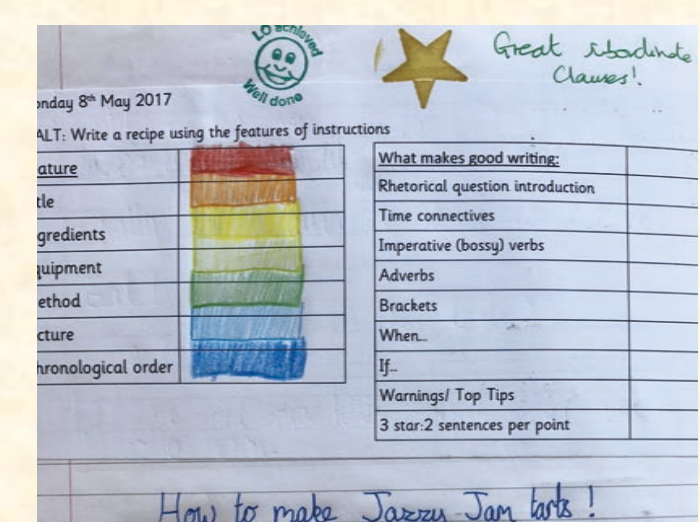 LO achieved
Well done
Great subordinate
Clauses!
onday 8th May 2017
ALT: Write a recipe using the features of instructions
ature
tle
gredients
quipment
ethod
cture
hronological order
What makes good writing:
Rhetorical question introduction
Time connectives
Imperative (bossy) verbs
Adverbs
Brackets
When...
If...
Warnings/ Top Tips
3 star:2 sentences per point
How to make Jazzy Jam tarts!